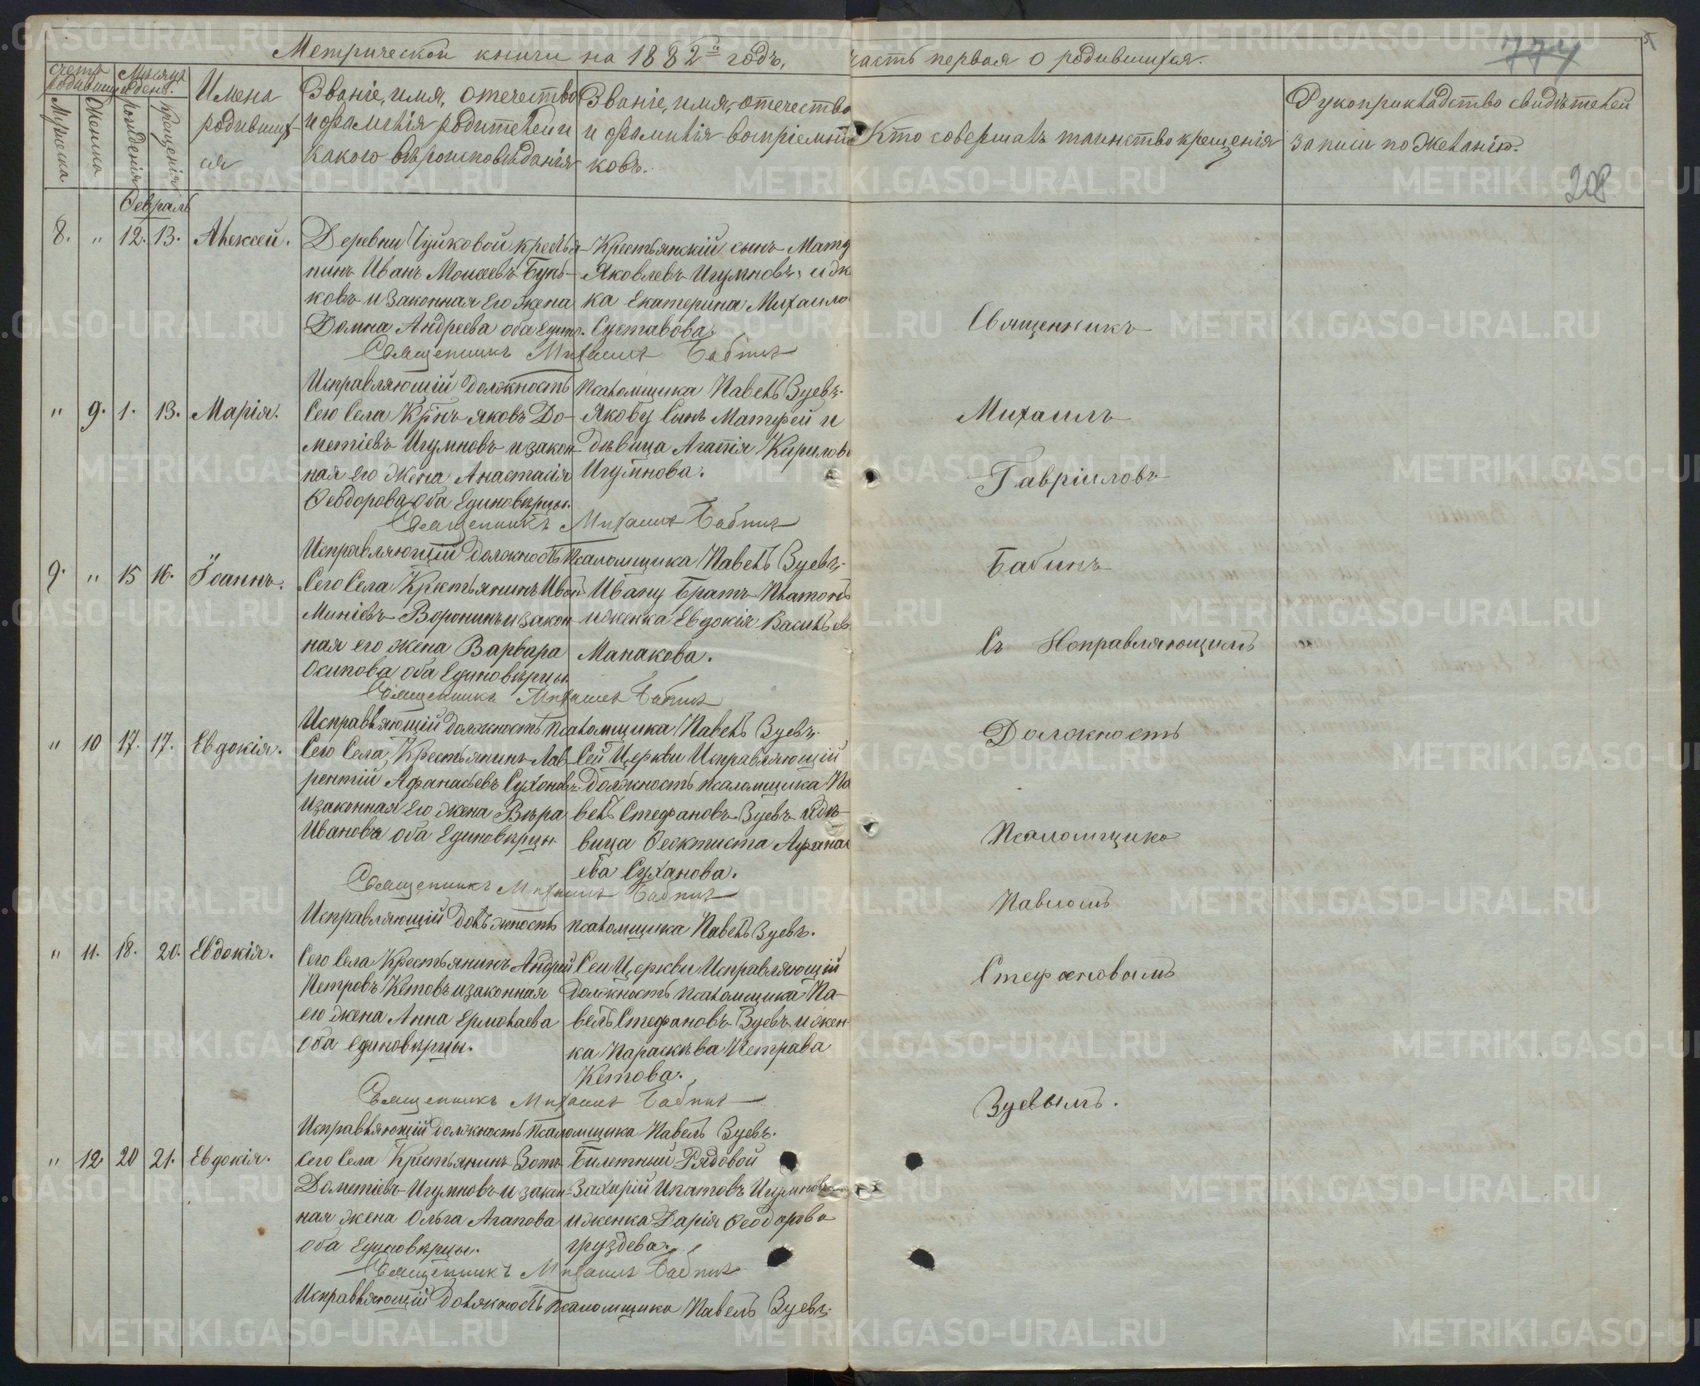 Метрической книги на 1882й годъ, часть первая о родившихся.
774
208
счетъ родившихся
Мужеска
Женска
Месяцъ и день.
рожденія
крещенія
Имена
родивших-
ся
Званіе, имя, отечество
и фамилія родителей и
какого вѣроисповѣданія
Званіе, имя, отечество
и фамилія воспріемни
ковъ.
Кто совершалъ таинство крещенія
Рукоприкладство свидѣтелей
записи по желанію.
Февраль
8. " 12. 13. Алексей.
Деревни Чуйковой крестья-
нинъ Иванъ Моисеевъ
ковъ и законная его жена
Домна Андреева оба един.
Крестьянскій сынъ
Яковлевъ Игумновъ, и
ка Екатерина Михаило
Суставова.
Священникъ Михаилъ Бабинъ
Исправляющій должность псаломщика Павелъ Зуевъ.
" 9. 1. 13. Марія.
Сего Села Крнъ Яковъ До-
метіевъ Игумновъ и закон-
ная его жена Анастасія
Феодорова оба Единовѣрцы.
Якову Сынъ Матфей и
дѣвица Агапія Кирилов
Игумнова.
Священникъ Михаилъ Бабинъ
Исправляющій должность псаломщика Павелъ Зуевъ.
9. " 15 16. Іоаннъ.
Сего Села Крестьянинъ Иван
Минѣевъ Воронинъ и закон
ная его жена Варвара
Осипова оба Единовѣрцы
Ивану Братъ Платонъ
и женка Евдокія Васильев
Манакова.
Священникъ Михаилъ Бабинъ
Исправляющій должность псаломщика Павелъ Зуевъ.
" 10 17. 17. Евдокія.
Сего Села, Крестьянинъ Лав-
рентій Афанасьевъ Сухановъ
и законная его жена Вѣра
Иванова оба Единовѣрцы
Сей Церкви Исправляющій
Должность псаломщика Па
велъ Стефановъ Зуевъ и дѣ-
вица Феоктиста Афанас
ева Суханова.
Священникъ Михаилъ Бабинъ
Исправляющій должность псаломщика Павелъ Зуевъ.
" 11. 18. 20. Евдокія.
Сего Села Крестьянинъ Андрей
Петровъ Кетовъ и законная
его жена Анна Ермолаева
оба единовѣрцы.
Сей Церкви Исправляющій
Должность псаломщика Па-
велъ Стефановъ Зуевъ и жен-
ка Параскѣва Петрова
Кетова.
Священникъ Михаилъ Бабинъ
Исправляющій должность псаломщика Павелъ Зуевъ.
" 12 20 21. Евдокія.
Сего Села Крестьянинъ Зотъ
Дометіевъ Игумновъ и закон-
ная жена Ольга Агапова
оба Единовѣрцы.
Билетный Рядовой
Захарій Ипатовъ Игумновъ
и женка Дарія Феодорова
груздева.
Священникъ Михаилъ Бабинъ
Исправляющій должность псаломщика Павелъ Зуевъ.
Священникъ
Михаилъ
Гавріиловъ
Бабинъ
Съ Исправляющимъ
Должность
Псаломщика
Павломъ
Стефановымъ
Зуевымъ.
METRIKI.GASO-URAL.RU